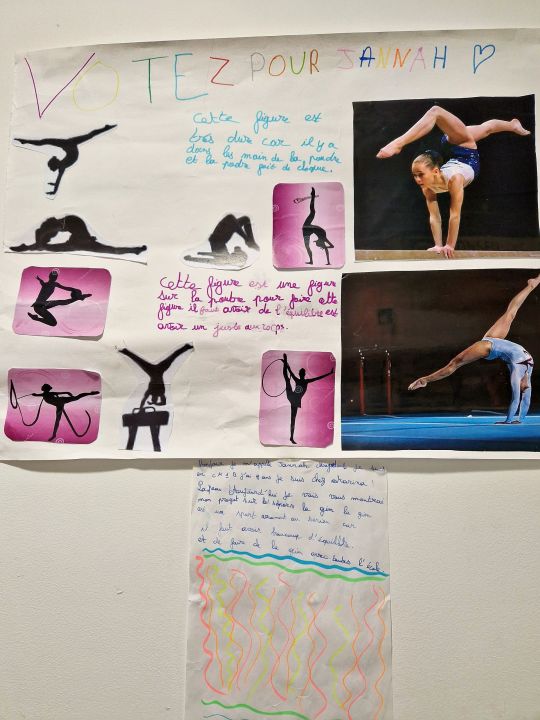 VOTEZ POUR JANNAH
Cette figure est
très dure car il y a
dans les main de la poudre
et la podre fait de claque.
Cette figure est une figure
sur la poutre pour faire ette
figure il faut avoir de l'équilibre est
avoir un juste au corps.
Bonjour je m'appelle Jannah je suis
en CM1B j'ai 9 ans je suis chez
Aujourd'hui je vais vous montrai
mon projet sur les la gim la gim
est un sport car
il faut avoir beaucoup d'équilibre.
et de faire de la gim avec toutes l'école.